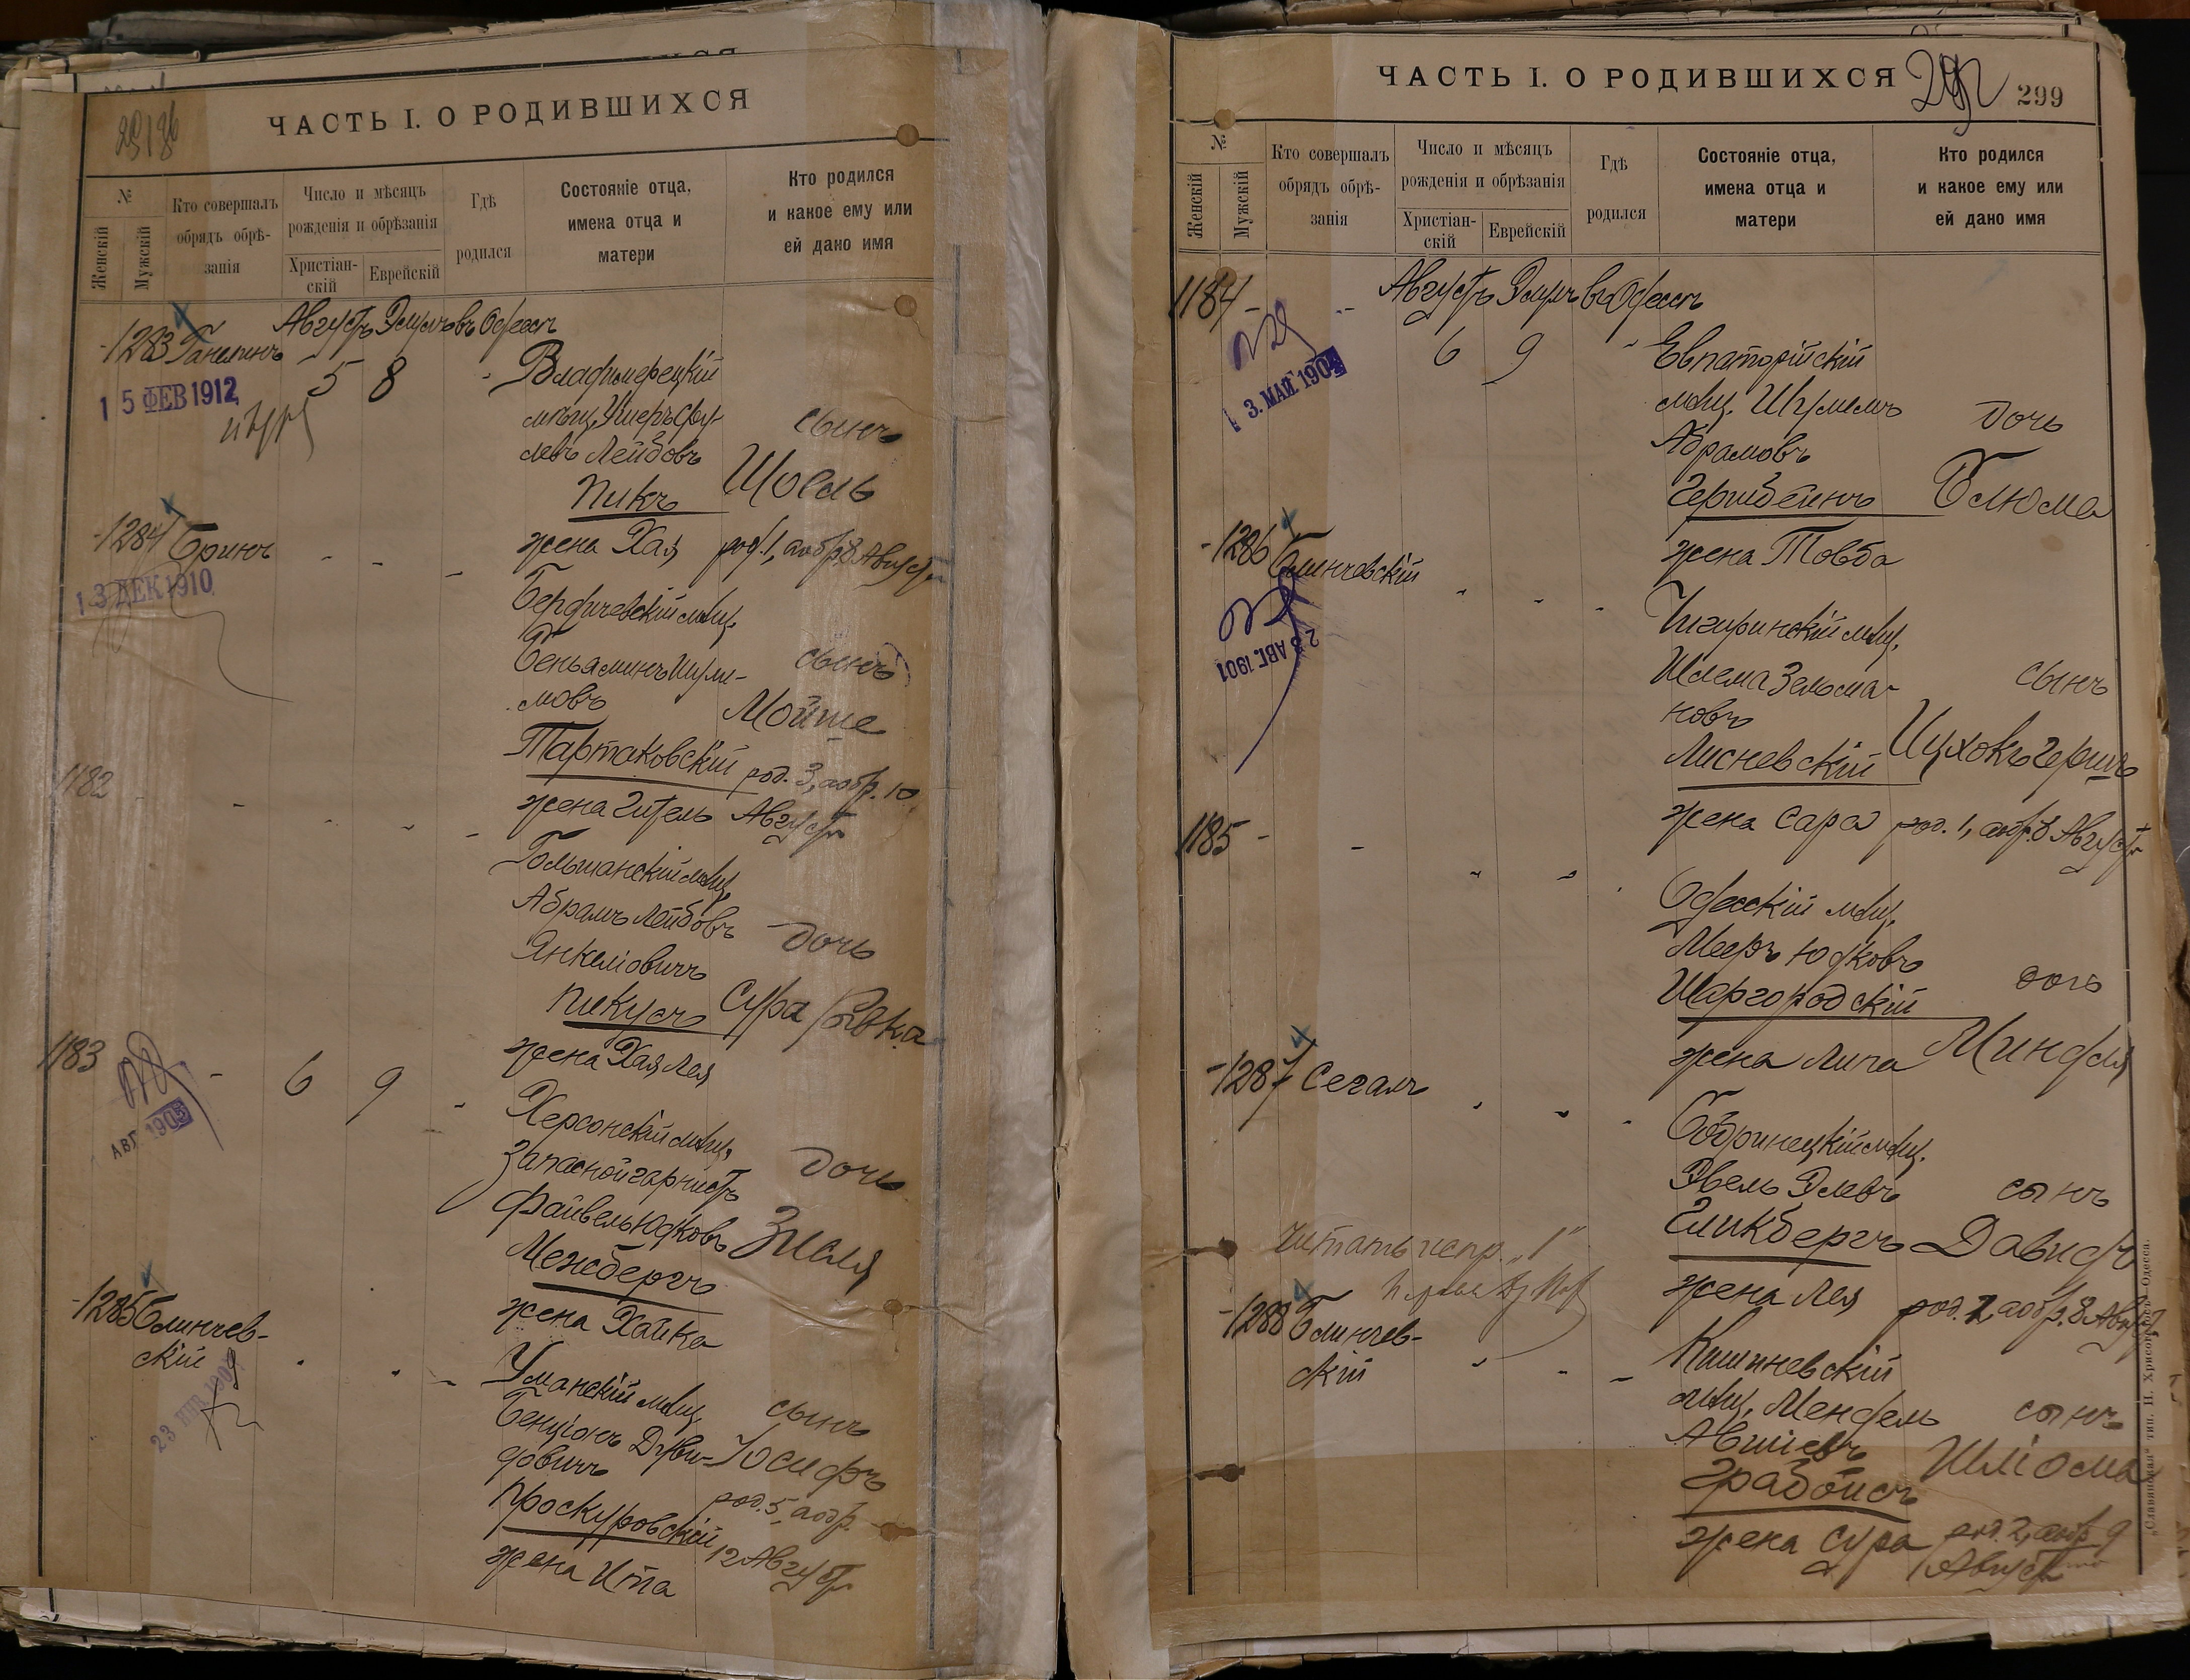 ЧАСТЬ I. О РОДИВШИХСЯ
№
Женскій
Мужскій
Кто совершалъ
обрядъ обрѣ-
занія
Число и мѣсяцъ
рожденія и обрѣзанія
Христіан-
скій
Еврейскій
Гдѣ
родился
Состояніе отца,
имена отца и
матери
Кто родился
и какое ему или
ей дано имя
Августъ Элулъ въ Одессѣ
1283 Ганелинъ
5 8
15 ФЕВ 1912
мѣщ.
Лейбовъ
Пикъ
жена Хая
сынъ
Шоель
род. 1, а обр. 8 Августа
1284 Бринъ
13 ДЕК 1910
Бердичевскій мѣщ.
Беньяминъ Шули-
мовъ
Тартаковскій
жена Гитель
сынъ
Мойше
род. 3, а обр. 10
Августа
1182
Гольшанскій мѣщ.
Абрамъ Лейбовъ
Янкеліовичъ
Пикусъ
жена Хая Лея
дочь
Сура Ривка
1183
6 9
АВГ 1905
Херсонскій мѣщ.
Запасной
Файвель Юдковъ
Менбергъ
жена Хайка
дочь
Зисля
1285 Блинчев-
скій
Уманскій мѣщ.
Бенціонъ Дави-
довичъ
Проскуровскій
жена Ита
сынъ
Юсифъ
род. 5, а обр.
12 Августа
ЧАСТЬ I. О РОДИВШИХСЯ
299
№
Женскій
Мужскій
Кто совершалъ
обрядъ обрѣ-
занія
Число и мѣсяцъ
рожденія и обрѣзанія
Христіан-
скій
Еврейскій
Гдѣ
родился
Состояніе отца,
имена отца и
матери
Кто родился
и какое ему или
ей дано имя
Августъ Элулъ въ Одессѣ
1184
6 9
3. МАЯ 1904
Евпаторійскій
мѣщ. Шулимъ
Абрамовъ
жена Товба
дочь
Блюма
1286 Блинчевскій
23 АВГ. 1901
Чигиринскій мѣщ.
Шлема Зельма-
новъ
Лисневскій
жена Сара
сынъ
Ицхокъ Гершъ
род. 1, а обр. 8 Августа
1185
Одесскій мѣщ.
Мееръ Юдковъ
Шаргородскій
жена Лича
дочь
Миндля
1287 Сегалъ
Бобринецкій мѣщ.
Эвель Элевъ
Гликбергъ
жена Лея
сынъ
Давидъ
род. 1, а обр. 8 Августа
Читать испр. „1"
1288 Блинчев-
скій
Кишиневскій
мѣщ. Мендель
Авшіевъ
Грабойсъ
жена Сура
сынъ
Шліома
род. 2, а обр. 9
Августа
„Славянская" тип. Н. Хрисогелосъ, Одесса.